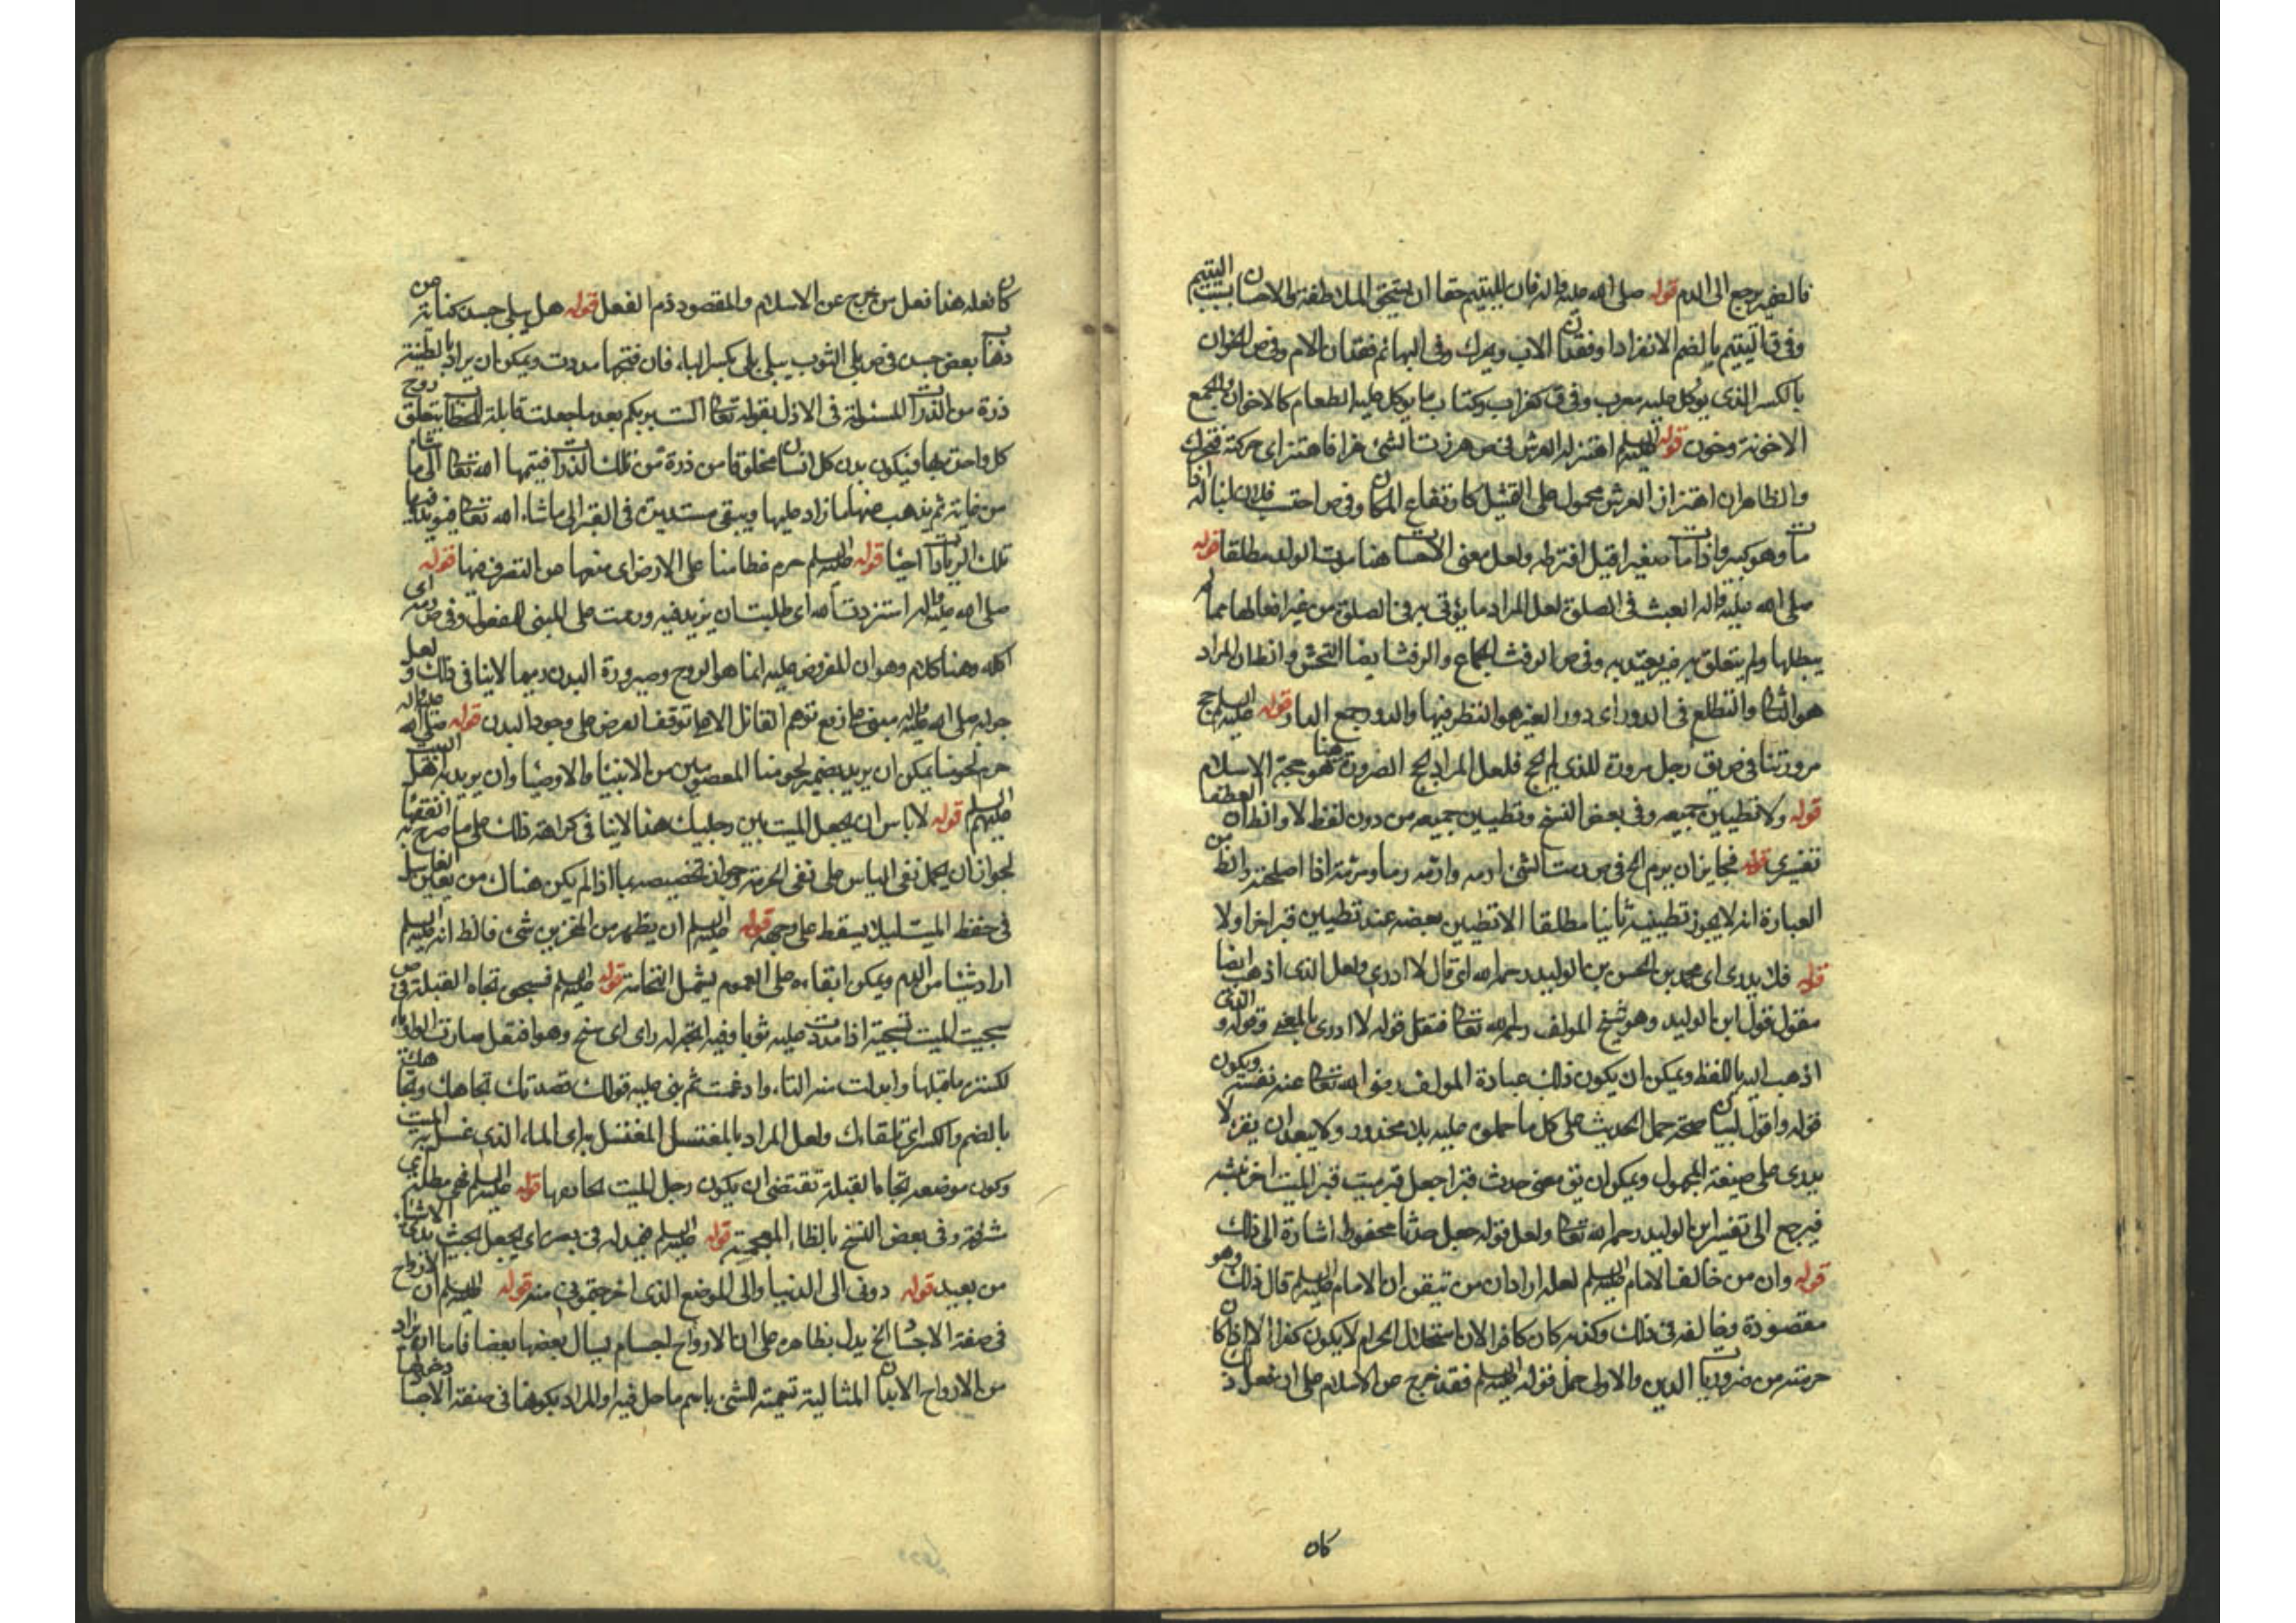 فالضمير يرجع الى الدم قوله صلى الله عليه واله فان لليتيم حقا ان يستحق الملاطفة والاحسان بسبب اليتيم
وفي ق اليتيم بالضم الانفراد او فقدان الاب ويحرك وفي البهائم فقدان الام وفي ص الخوان
بالكسر الذي يؤكل عليه معرب وفي ق كغراب وكتاب ما يؤكل عليه الطعام كالاخوان والجمع
الاخونة وخون قوله عليه السلم اهتز له العرش في ص هززت الشئ هزا فاهتز اي حركته فتحرك
والظاهر ان اهتزاز العرش محمول على التمثيل كارتفاع المكان وفي ص احتسب فلان ابنا له اذا
مات وهو كبير واذا مات صغيرا قيل افترطه ولعل معنى الاحتساب هنا موت الولد مطلقا قوله
صلى الله عليه واله العبث في الصلوة لعل المراد ما يؤتى به في الصلوة من غير افعالها مما لم
يبطلها ولم يتعلق به غرض يعتد به وفي ص الرفث الجماع والرفث ايضا الفحش وانظان المراد
هو الثاني والتطلع في الدور اي دور الغير هو النظر فيها والدور جمع الدار قوله عليه السلم حج
صرورتنا في ص يق رجل صرورة للذي لم يحج فلعل المراد بحج الصرورة هنا هو حجة الاسلام
قوله ولا تطيين جميعه وفي بعض النسخ وتطيين جميعه من دون لفظ لا وانظ ان العطف
تفسيري قوله فجايز ان يرم الخ في ص رمت الشئ ارمه وارمه رما ومرمة اذا اصلحته وانظ من
العبارة انه لا يجوز تطيينه ثانيا مطلقا الا تطيين بعضه عند تطيين قبر اخر اولا
قوله فلا يدرى اي محمد بن الحسن بن الوليد رحمه الله اي قال لا ادري ولعل الذي اذهب ايضا
مقول قول ابن الوليد وهو شيخ المولف رحمه الله تعالى فنقل قوله لا ادري بالمعنى وقوله والذي
اذهب اليه باللفظ ويمكن ان يكون ذلك عبارة المولف رضي الله تعالى عنه نفسه ويكون
قوله واقول لبيان صحة حمل الحديث على كل ما حملوه عليه بلا محذور ولا يبعد ان يقرء لا
يدرى على صيغة المجهول ويمكن ان يق معنى حدث قبرا جعل قبر ميت قبر الميت اخر نبشه
فيرجع الى تفسير ابن الوليد رحمه الله تعالى ولعل قوله جعل حدثا محفوظ اشارة الى ذلك
قوله وان من خالف الامام عليه السلم لعله اراد ان من تيقن ان الامام عليه السلم قال ذلك وهو
مقصوده وخالفه في ذلك وكذبه كان كافرا لان استحلال الحرام لا يكون كفرا الا اذا كان
حرمته من ضروريات الدين والاولى حمل قوله عليه السلم فقد خرج من الاسلام على ان فعل ذلك
كان
كان فعله هذا فعل من خرج عن الاسلام والمقصود ذم الفعل قوله هل يبلى جسده كناية عن
ذهاب بعض جسده في ص بلي الثوب يبلى بلى بكسر الباء فان فتحتها مددت ويمكن ان يراد بالطينة
ذرة من الذرات المسئولة في الازل بقوله تعالى الست بربكم بعد ما جعلت قابلة للخطاب بتعلق روح
كل واحد بها فيكون بدن كل انسان مخلوقا من ذرة من تلك الذرات فينميها الله تعالى الى ما شاء
من غاية ثم يذهب عنها ما زاد عليها ويبقى مستديرة في القبر الى ما شاء الله تعالى فيزيد فيها
تلك الزيادات احيانا قوله عليه السلم حرم عظامنا على الارض اي منعها من التصرف فيها قوله
صلى الله عليه واله استزدت الله اي طلبت ان يزيد فيه ورمت على المبنى للمفعول وفي ص رمه اي
اكله وهنا كلام وهو ان المعروض عليه انما هو الروح وصيرورة البدن رميما لا ينافي ذلك ولعل
جوابه صلى الله عليه واله مبني على رفع توهم القائل الاهم توقف العرض على وجود البدن قوله صلى الله عليه واله
حرم لحومنا يمكن ان يريد بضمير لحومنا المعصومين من الانبياء والاوصياء وان يريد به اهل البيت
عليهم السلم قوله لا باس ان يجعل الميت بين رجليك هذا لا ينافي كراهة ذلك على ما صرح به الفقهاء
لجواز ان يحمل نفي الباس على نفي الحرمة وجواز تخصيصه بما اذا لم يكن هناك من يعين الغاسل
في حفظ الميت ليلا يسقط على وجهه قوله عليه السلم ان يظهر من المنخرين شئ فانظ انه عليه السلم
اراد شيئا من الدم ويمكن ابقاءه على العموم ليشمل النخامة قوله عليه السلم فسجى تجاه القبلة في ص
سجيت الميت تسجية اذا مددت عليه ثوبا وفيه اتجه له راي اي سنح وهو افتعل صارت الواو ياء
لكسرة ما قبلها وابدلت منه التاء وادغمت ثم بني عليه قولك قعدت تجاهك وتجاهك
بالضم والكسر اي تلقاءك ولعل المراد بالمغتسل المغتسل به اي الماء الذي غسل به الميت
وكون موضعه تجاه القبلة تقتضي ان يكون رجل الميت بحانبها قوله عليه السلم
وفي بعض النسخ بالظاء المعجمة قوله عليه السلم فيمد له في بصره اي يجعل بحيث يرى الاشياء
من بعيد قوله ردوني الى الدنيا والى الموضع الذي اخرجتموني منه قوله عليه السلم ان الارواح
في صفة الاجساد الخ يدل بظاهره على ان الارواح اجسام يسال بعضها بعضا فاما ان يراد
من الارواح الابدان المثالية تسمية للشئ باسم ما حل فيه او المراد بكونها في صفة الاجساد